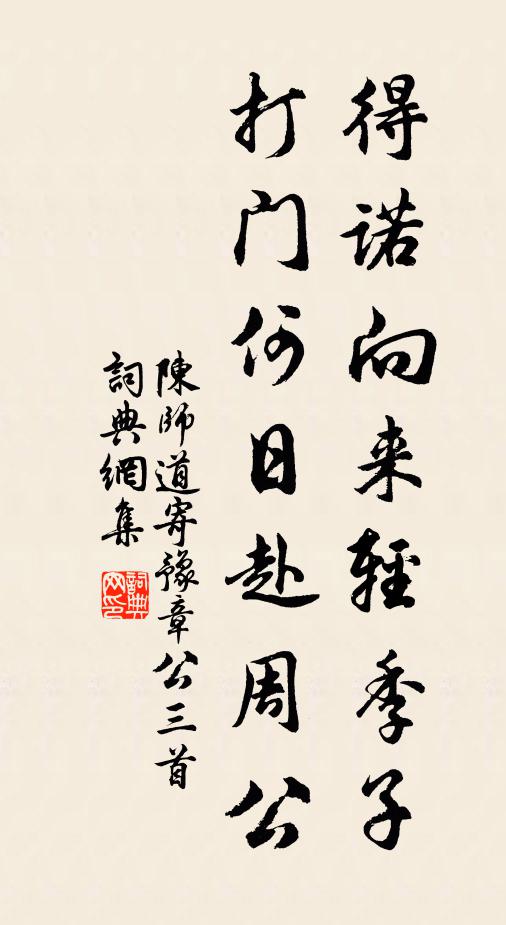 得诺向来輕季子
打门何日赴周公
陳師道寄豫章公三首
詞典網集
詞典网印